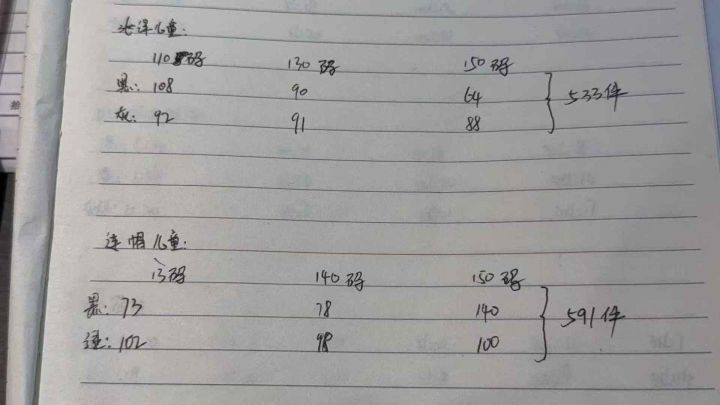 北洋儿童:
110码 130码 150码
黑: 108 90 64
灰: 92 91 88
533件
连帽儿童:
13码 140码 150码
黑: 73 78 140
: 102 98 100
591件